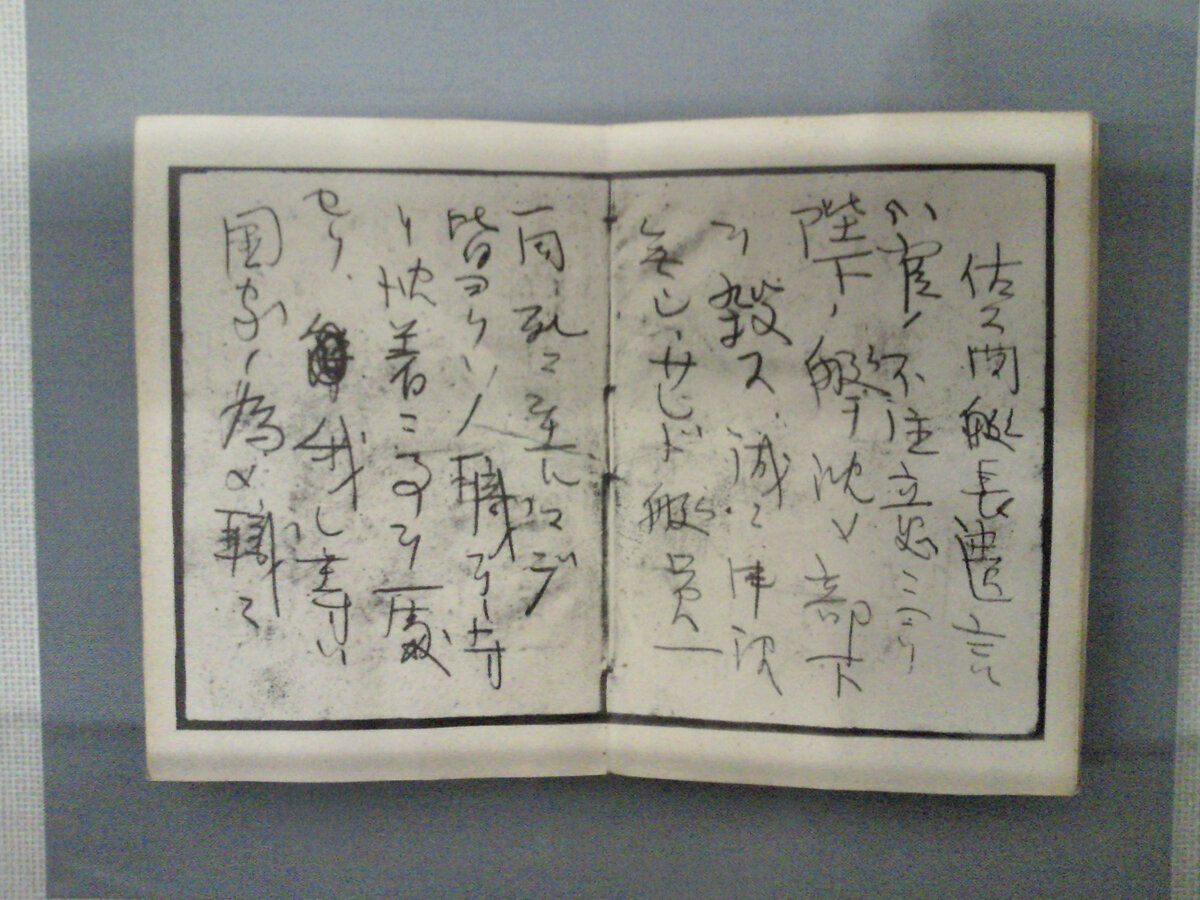 佐久間艇長遺言
小官ノ不注意ニヨリ
陛下ノ艇ヲ沈メ部下
ヲ殺ス、誠ニ申訳
無シ、サレド艇員一
同、死ニ至ルマデ
皆ヨクソノ職ヲ守
リ沈着ニ事ヲ処
セリ、我レ等ハ
国家ノ為メ職ニ